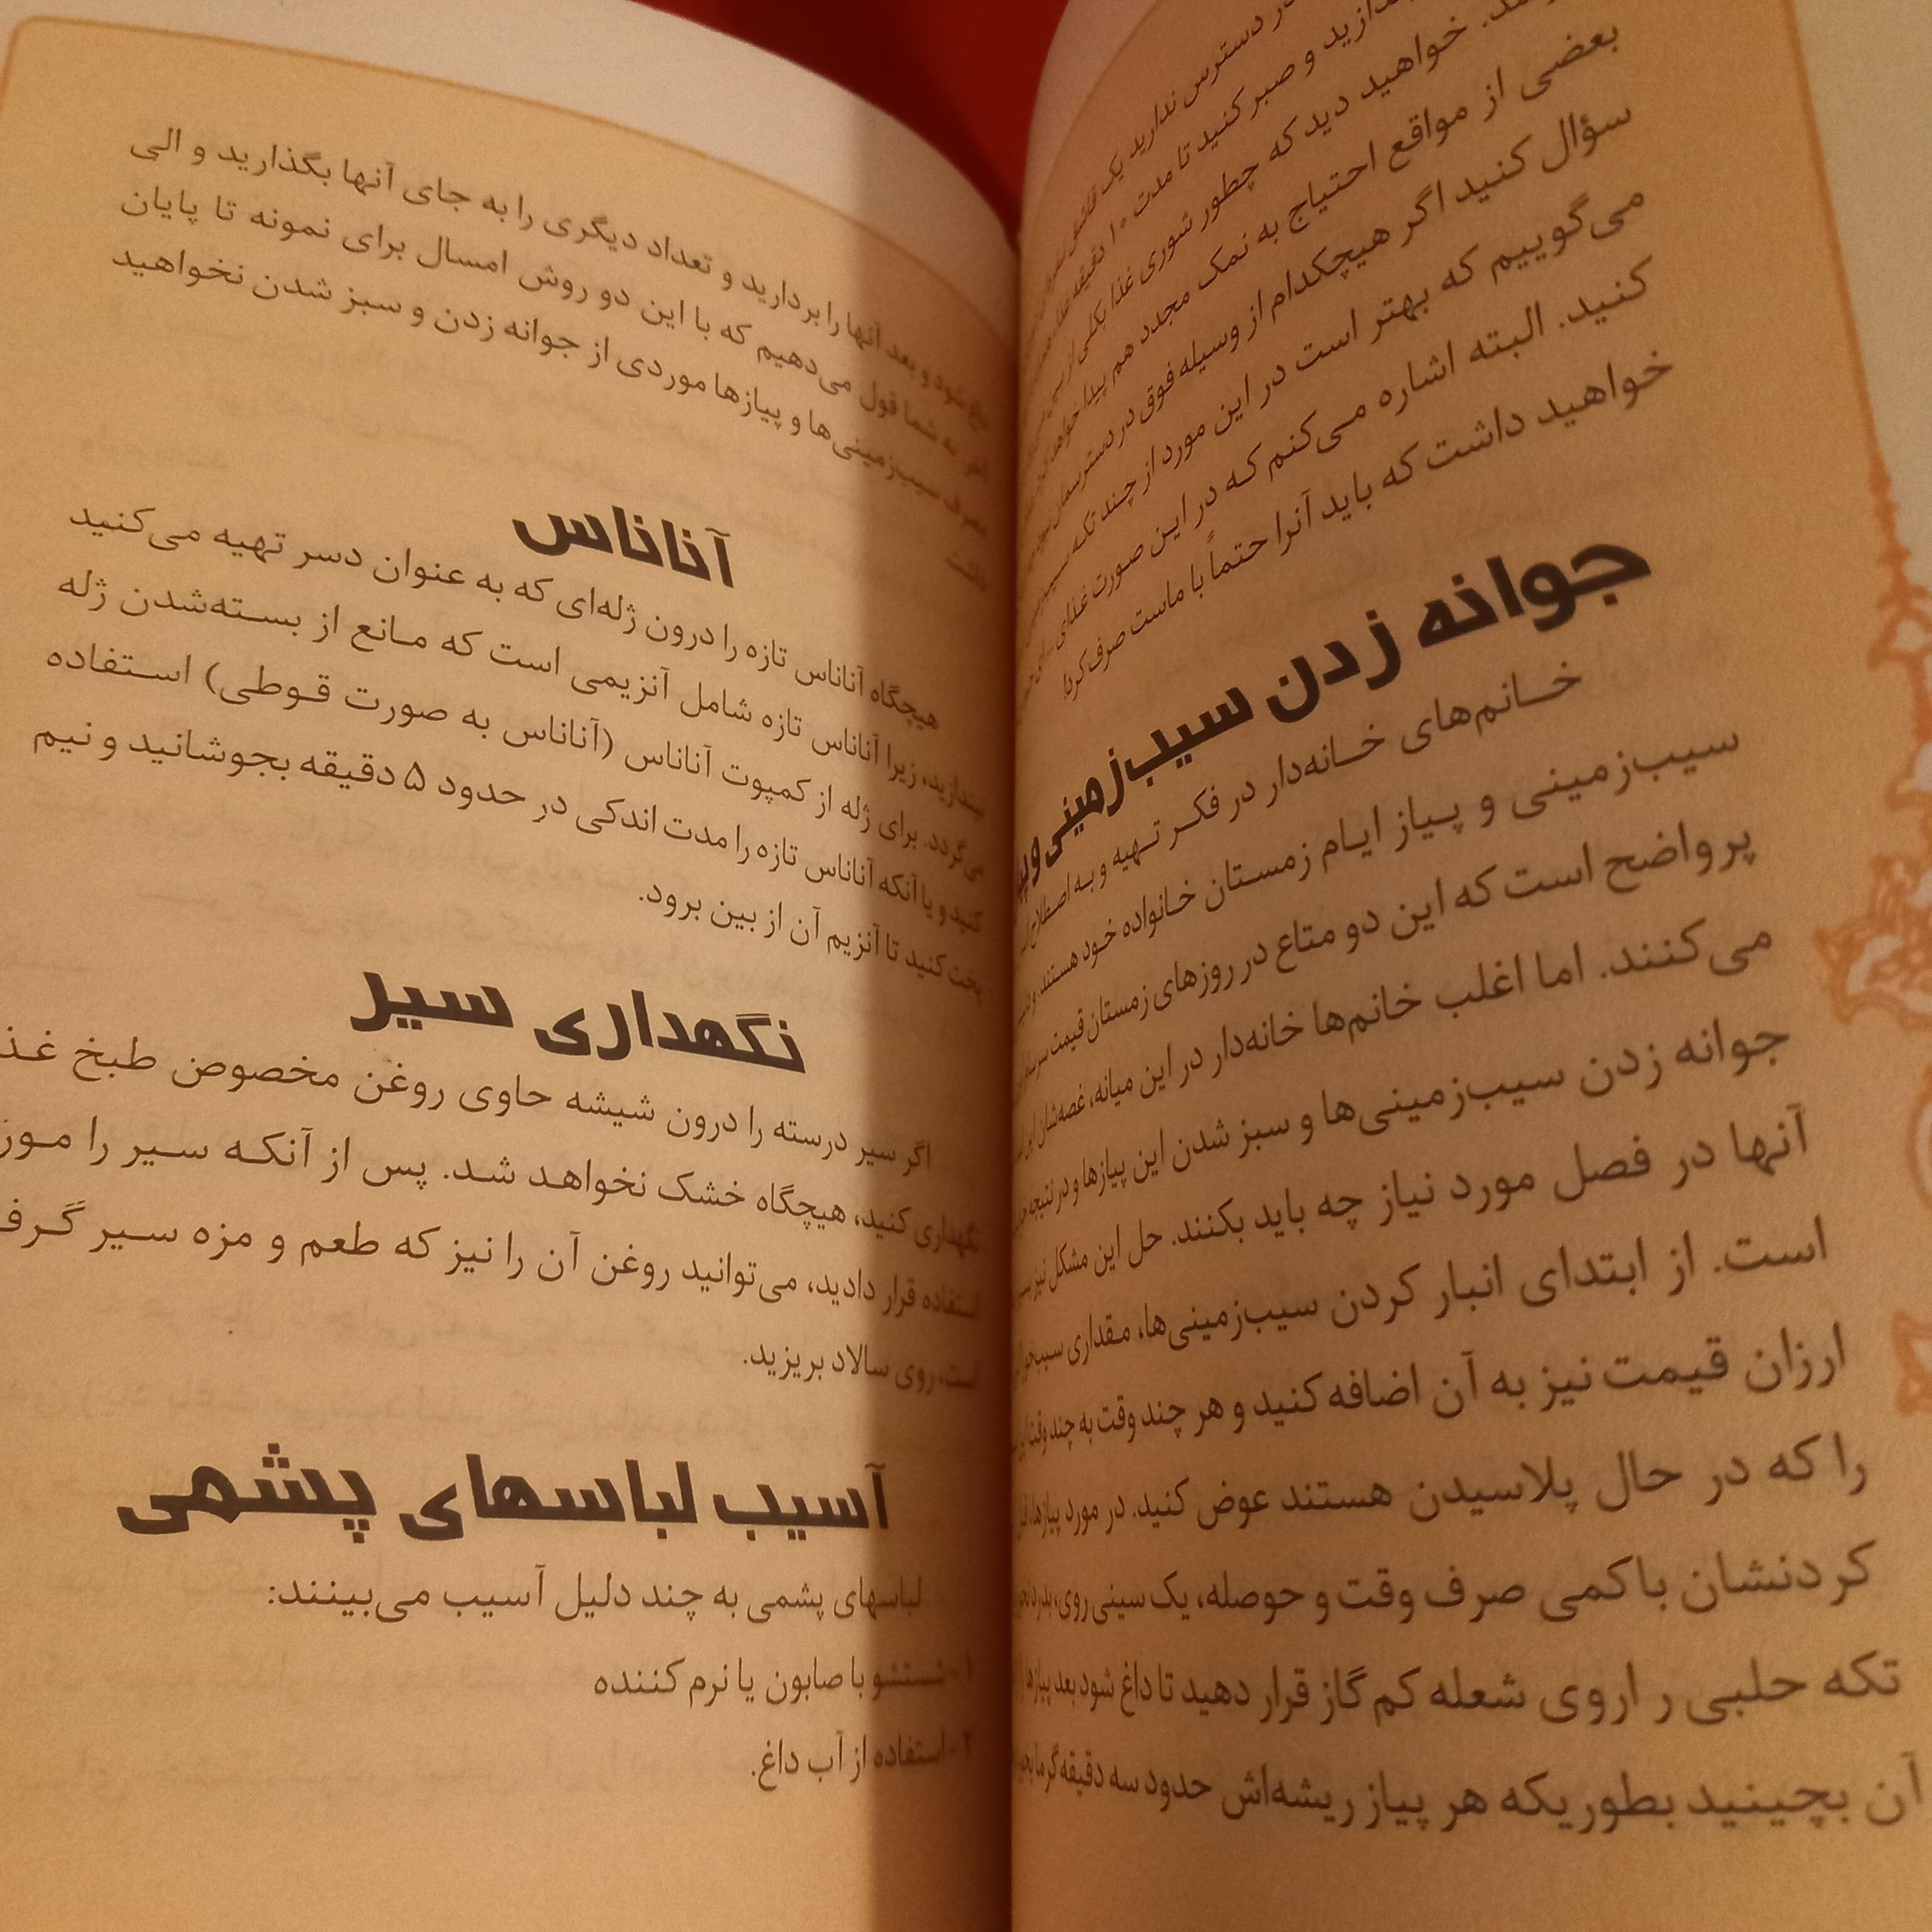 دسترس ندارید یک قاشق
و صبر کنید تا مدت ۱۰ دقیقه
خواهید دید که چطور شوری غذا بکلی از بین
بعضی از مواقع احتیاج به نمک مجدد هم پیدا خواهد
سؤال کنید اگر هیچکدام از وسیله فوق در دسترسمان
می‌گوییم که بهتر است در این مورد از چند تکه
کنید. البته اشاره می‌کنم که در این صورت غذای
خواهید داشت که باید آنرا حتماً با ماست صرف کرد!
جوانه زدن سیب‌زمینی و
خانم‌های خانه‌دار در فکر تهیه و به اصطلاح
سیب‌زمینی و پیاز ایام زمستان خانواده خود هستند،
پر واضح است که این دو متاع در روزهای زمستان قیمت
می‌کنند. اما اغلب خانم‌ها خانه‌دار در این میانه، غصه‌شان این
جوانه زدن سیب‌زمینی‌ها و سبز شدن این پیازها و در نتیجه
آنها در فصل مورد نیاز چه باید بکنند. حل این مشکل نیز
است. از ابتدای انبار کردن سیب‌زمینی‌ها، مقداری
ارزان قیمت نیز به آن اضافه کنید و هر چند وقت به چند وقت
را که در حال پلاسیدن هستند عوض کنید. در مورد پیازها،
کردنشان باکمی صرف وقت و حوصله، یک سینی روی،
تکه حلبی ر اروی شعله کم گاز قرار دهید تا داغ شود بعد پیازها
آن بچینید بطوریکه هر پیاز ریشه‌اش حدود سه دقیقه گرما
شود و بعد آنها را بردارید و تعداد دیگری را به جای آنها بگذارید و الی
آخر. به شما قول می‌دهیم که با این دو روش امسال برای نمونه تا پایان
مصرف سیب‌زمینی‌ها و پیازها موردی از جوانه زدن و سبز شدن نخواهید
داشت
آناناس
هیچگاه آناناس تازه را درون ژله‌ای که به عنوان دسر تهیه می‌کنید
نیندازید، زیرا آناناس تازه شامل آنزیمی است که مانع از بسته‌شدن ژله
می‌گردد. برای ژله از کمپوت آناناس (آناناس به صورت قوطی) استفاده
کنید و یا آنکه آناناس تازه را مدت اندکی در حدود ۵ دقیقه بجوشانید و نیم
پخت کنید تا آنزیم آن از بین برود.
نگهداری سیر
اگر سیر درسته را درون شیشه حاوی روغن مخصوص طبخ
نگهداری کنید، هیچگاه خشک نخواهد شد. پس از آنکه سیر را
استفاده قرار دادید، می‌توانید روغن آن را نیز که طعم و مزه سیر
است، روی سالاد بریزید.
آسیب لباسهای پشمی
لباسهای پشمی به چند دلیل آسیب می‌بینند:
۱- شستشو با صابون یا نرم کننده
۲- استفاده از آب داغ.